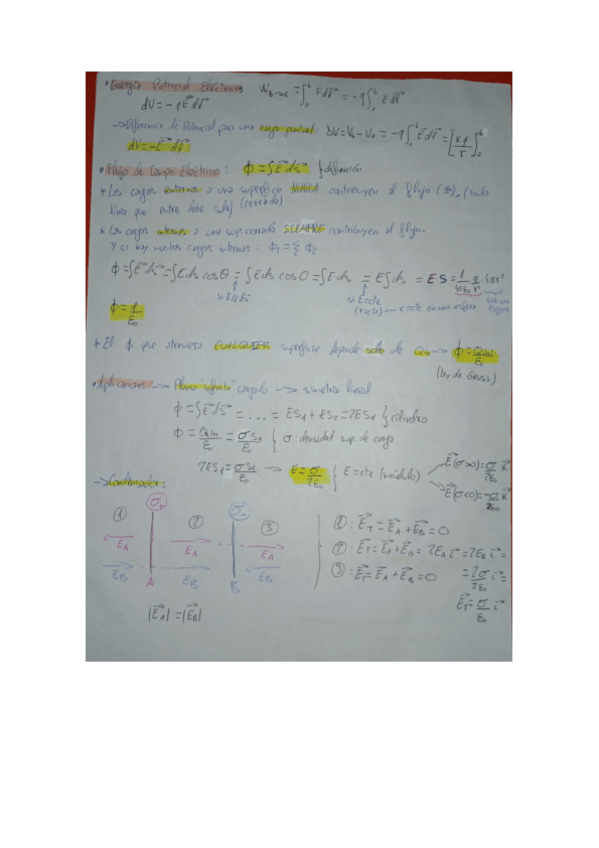 • Energía Potencial Eléctrica: W = ∫ F d\vec{r} = -q ∫ \vec{E} d\vec{r}
dU = -q \vec{E} d\vec{r}
→ Diferencia de Potencial para una carga puntual: ΔV = V_b - V_a = -q ∫ \vec{E} d\vec{r} = [kq/r]
dV = -\vec{E} d\vec{r}
• Flujo de Campo Eléctrico: Φ = ∫ \vec{E} d\vec{s} } definición
* Las cargas externas a una superficie NUNCA contribuyen al flujo (toda
línea que entra debe salir) (cerrada)
* Las cargas internas a una sup. cerrada SIEMPRE contribuyen al flujo.
Y si hay muchas cargas internas: Φ_T = Σ Φ_i
Φ = ∫ \vec{E} d\vec{s} = ∫ E ds cos θ = ∫ E ds cos 0 = ∫ E ds = E ∫ ds = E·S = 1/4πε₀ q/r² · 4πr²
si E=cte
(r=cte) r=cte en una esfera
Φ = q/ε₀
* El Φ que atraviesa CUALQUIER superficie depende solo de Q_int → Φ = Q_int/ε₀
(Ley de Gauss)
• Aplicaciones → Plano "infinito" cargado → simetría lineal
Φ = ∫ \vec{E} d\vec{s} = ... = ES₁ + ES₂ = 2ES₁ } cilindro
Φ = Q_int/ε₀ = σS₁/ε₀ { σ: densidad sup. de carga
2ES₁ = σS₁/ε₀ → E = σ/2ε₀ { E = cte (módulo)
\vec{E}(σ>0) = σ/2ε₀
\vec{E}(σ<0) = -σ/2ε₀
→ Condensador:
① ② ③
E_A E_A E_A
E_B E_B E_B
A B
|\vec{E_A}| = |\vec{E_B}|
①: \vec{E_T} = \vec{E_A} + \vec{E_B} = 0
②: \vec{E_T} = \vec{E_A} + \vec{E_B} = 2E_A \vec{i} = 2E_B \vec{i} =
③: \vec{E_T} = \vec{E_A} + \vec{E_B} = 0
= 2σ/2ε₀ \vec{i} =
\vec{E_T} = σ/ε₀ \vec{i}